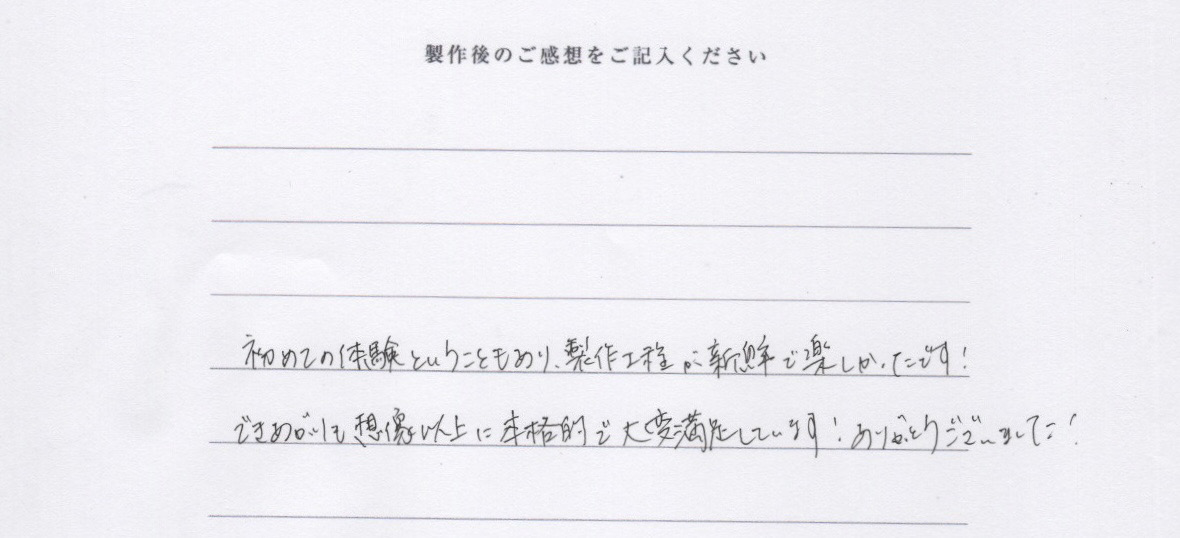 製作後のご感想をご記入ください
初めての体験ということもあり、製作工程が新鮮で楽しかったです!
できあがりも想像以上に本格的で大変満足しています!ありがとうございました!